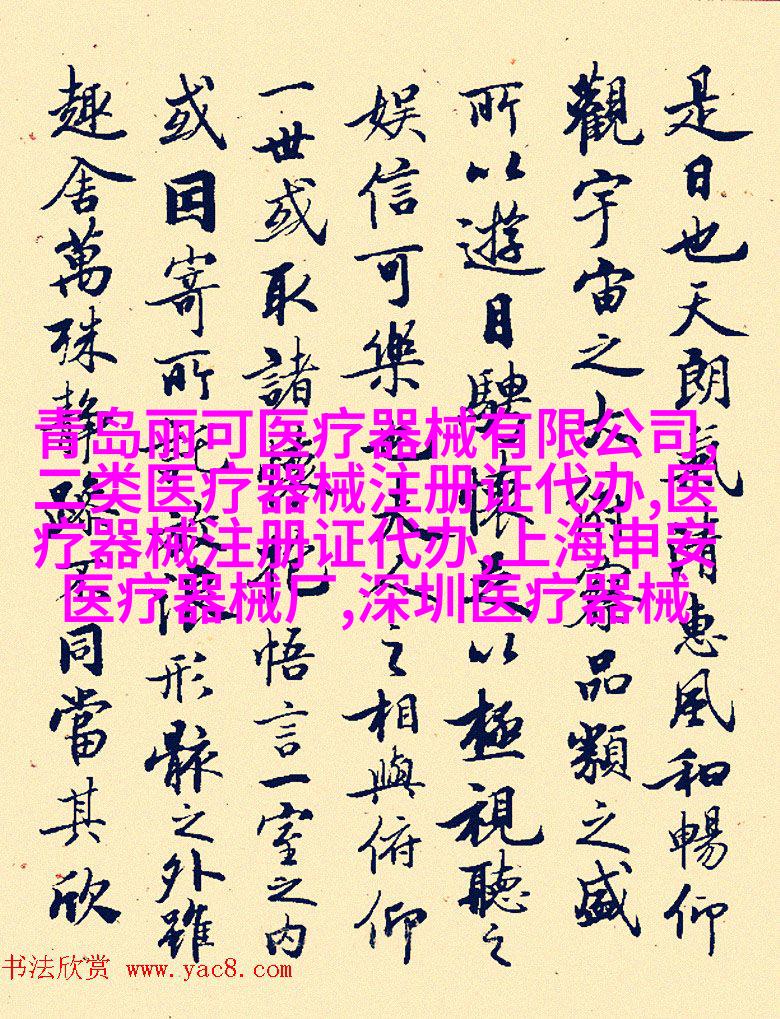 是日也天朗氣清惠風和暢仰
觀宇宙之大俯察品類之盛
所以遊目騁懷足以極視聽之
娛信可樂也夫人之相與俯仰
一世或取諸懷抱悟言一室之内
或因寄所託放浪形骸之外雖
趣舍萬殊静躁不同當其欣
青岛丽可医疗器械有限公司,
二类医疗器械注册证代办,医
疗器械注册证代办,上海申安
医疗器械厂,深圳医疗器械
书法欣赏 www.yac8.com